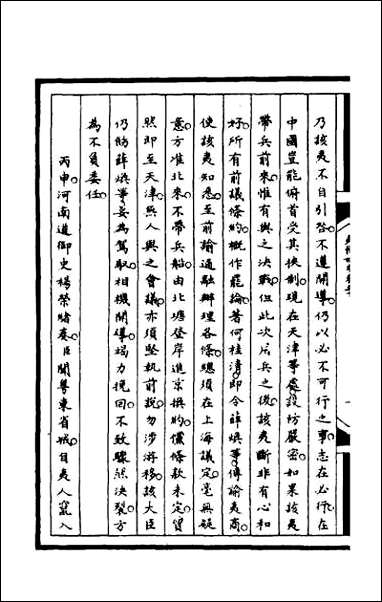 乃該夷不自引咎。不遵開導。仍以必不可行之事。志在必行。在
中國豈能俯首受其挾制。現在天津等處。設防嚴密。如果該夷
帶兵前來。惟有與之決戰。但此次用兵之後。該夷斷非有心和
好。所有前議條約。概作罷論。著何桂清。即令薛煥等。傳諭夷商。
使該夷知悉。至前諭通融辦理各條。總須在上海議定。毫無疑
意。方准北來。不帶兵船。由北塘登岸進京換約。儻條款未定。貿
然即至天津。無人與之會議。亦須堅執前說。勿涉游移。該大臣
仍飭薛煥等。妥為駕馭。相機開導。竭力挽回。不致驟然決裂。方
為不負委任。
丙申。河南道御史楊榮緒奏。臣聞粵東省城。自夷人竄入